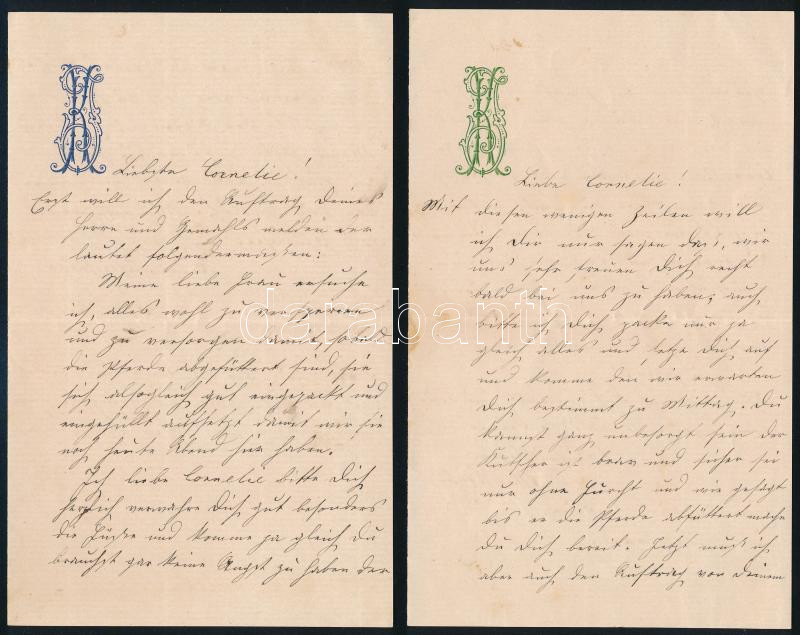 Liebste Cornelie!
Erst will ich den Auftrag Deines
Herrn und Gemahls melden der
lautet folgendermassen:
Meine liebe Frau ersuche
ich, alles wohl zu versperren
und zu versorgen damit, sobald
die Pferde abgefüttert sind, sie
sich alsogleich gut eingepackt und
eingehüllt aufsetzt damit wir sie
noch heute Abend hier haben.
Ich liebe Cornelie bitte Dich
herzlich verwahre Dich gut besonders
die Füsse und komme ja gleich Du
brauchst gar keine Angst zu haben der
Liebe Cornelie!
Mit diesen wenigen Zeilen will
ich Dir nur sagen das, wir
uns sehr freuen Dich recht
bald bei uns zu haben, auch
bitte ich Dich, packe nur ja
gleich alles und setze Dich auf
und komme den wir erwarten
Dich bestimmt zu Mittag. Du
kannst ganz unbesorgt sein der
Kutscher ist brav und sicher sei
nur ohne Furcht und wie gesagt
bis er die Pferde abfüttert mache
Du Dich bereit. Jetzt muß ich
aber auch den Auftrag von Deinem
darabanth